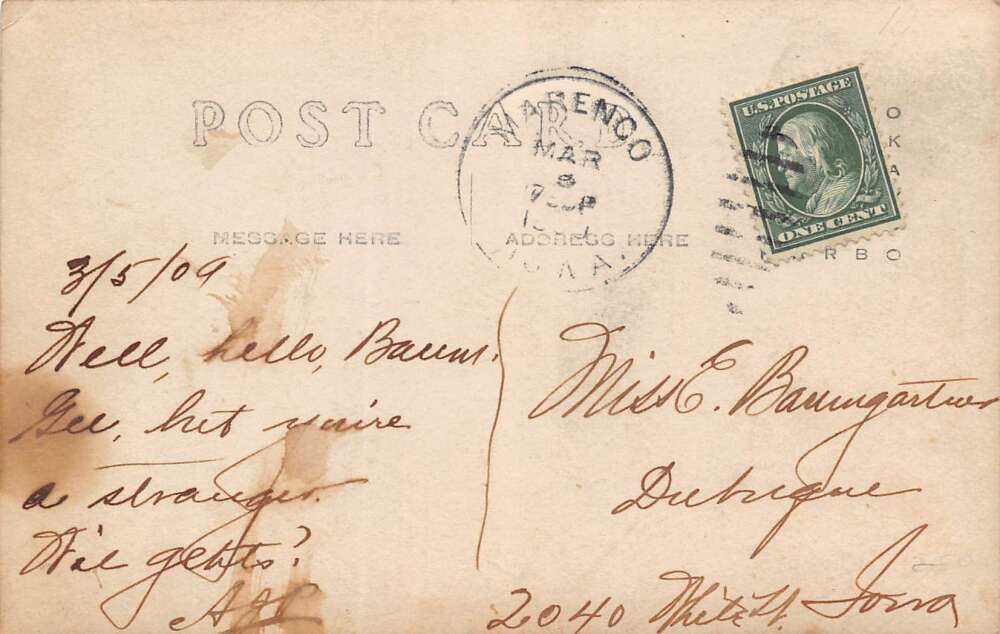 POST CARD
MARENGO
MAR
8
IOWA.
U.S. POSTAGE
ONE CENT
MESSAGE HERE
ADDRESS HERE
3/5/09
Well, hello, Baum.
Gee, but you're
a stranger.
Miss E. Baumgartner
Dubuque
2040 White St. Iowa